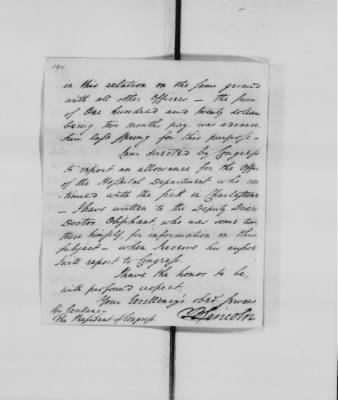 in this relation on the same ground
with all other Officers — the sum
of One hundred and twenty dollars
being two months pay was advanc
him last spring for this purpose —
I am directed by Congress
to report an allowance for the Offi
of the Hospital Department who co
tinued with the sick in Charlestown
— I have written to the Deputy Direc
Doctor Oliphant, who was some time
there himself, for information on this
subject — when I receive his answ
I will report to Congress
I have the honor to be,
with profound respect,
Your Excellency's obed. serv
B Lincoln
His Excellency
The President of Congress